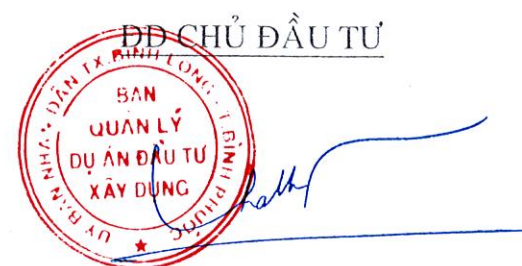 ĐD CHỦ ĐẦU TƯ
ỦY BAN NHÂN DÂN TX.BÌNH LONG - T.BÌNH PHƯỚC
BAN
QUẢN LÝ
DỰ ÁN ĐẦU TƯ
XÂY DỰNG